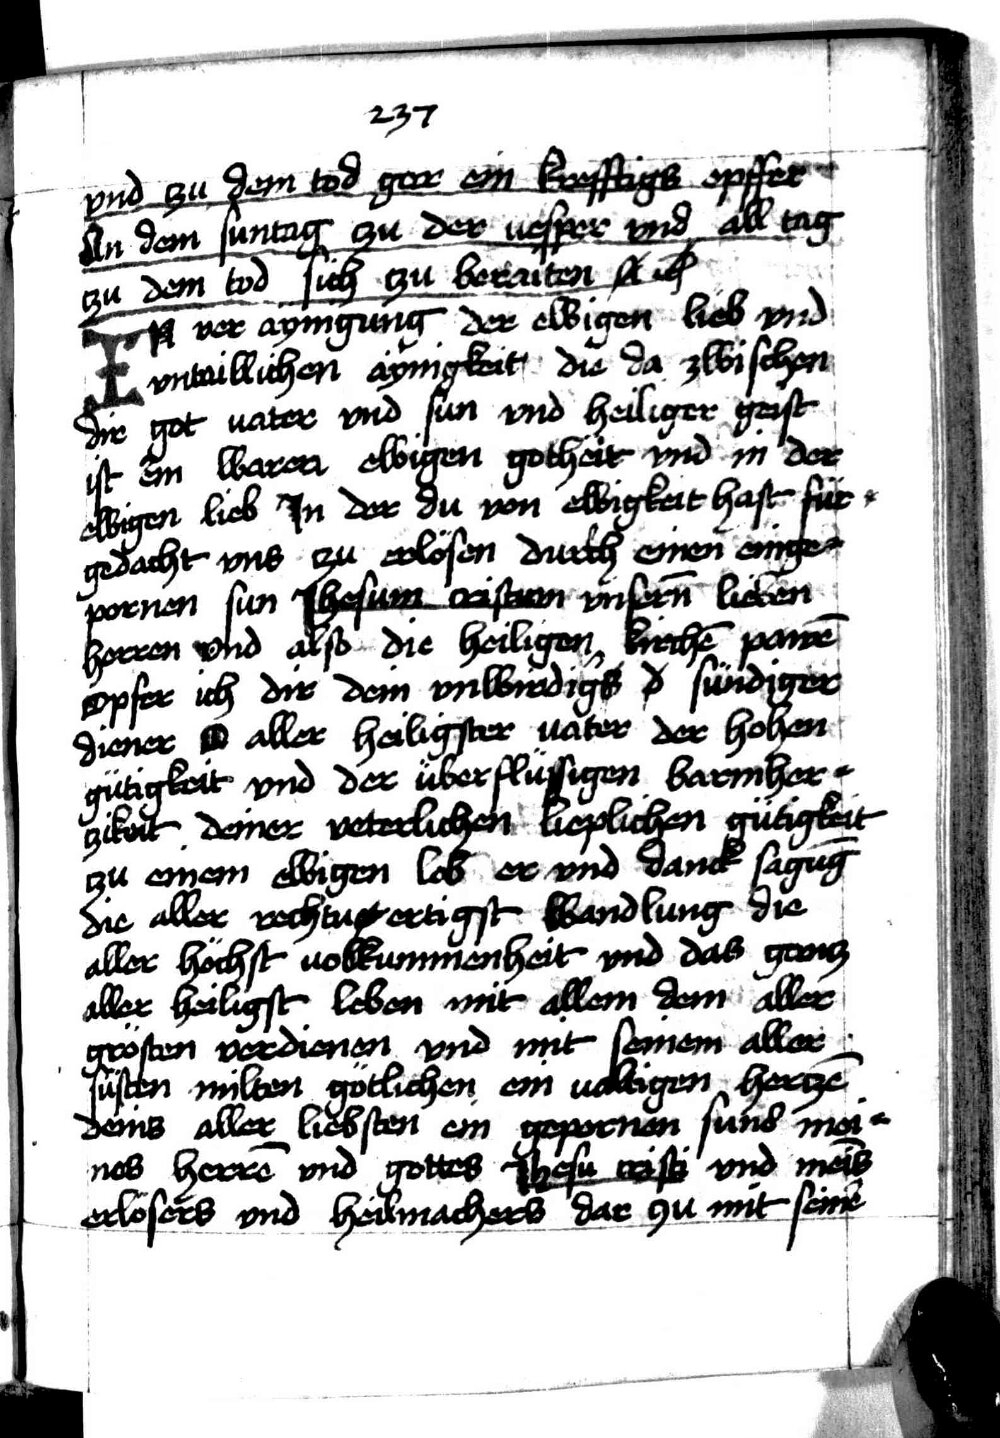 237
vnd tzu dem tod gar ein krefftigs opffer
An dem suntag tzu der uesper vnd all tag
tzu dem tod sich tzu beraiten
IN ver aynigung der ewigen lieb vnd
vntaillichen aynigkeit die da zwischen
dir got uater vnd sun vnd heiliger geist
ist Ein waren ewigen gotheit vnd in der
ewigen lieb In der du von ewigkeit hast für-
gedacht vns tzu erlösen durch einen einge-
pornen sun Jhesum cristum vnsern̄ lieben
herren vnd also die heiligen kirchē pawē
Opfer ich dir dein vnwirdigs d sündiger
diener O aller heiligster uater der hohen
gütigkeit vnd der überflüssigen barmher-
zikeit deiner veterlichen lieplichen gütigkeit
tzu einem ewigen lob er vnd danck sagūg
die aller rechtuertigst wandlung die
aller höchst uolkummenheit vnd das gantz
aller heiligst leben mit allem dem aller
grösten verdienen vnd mit seinem aller
süsten milten götlichen ein ualtigen hertzē
deins aller liebsten ein gepornen suns mei-
nes herrē vnd gottes Jhesu cristi vnd meīs
erlösers vnd heilmachers dar zu mit seinē